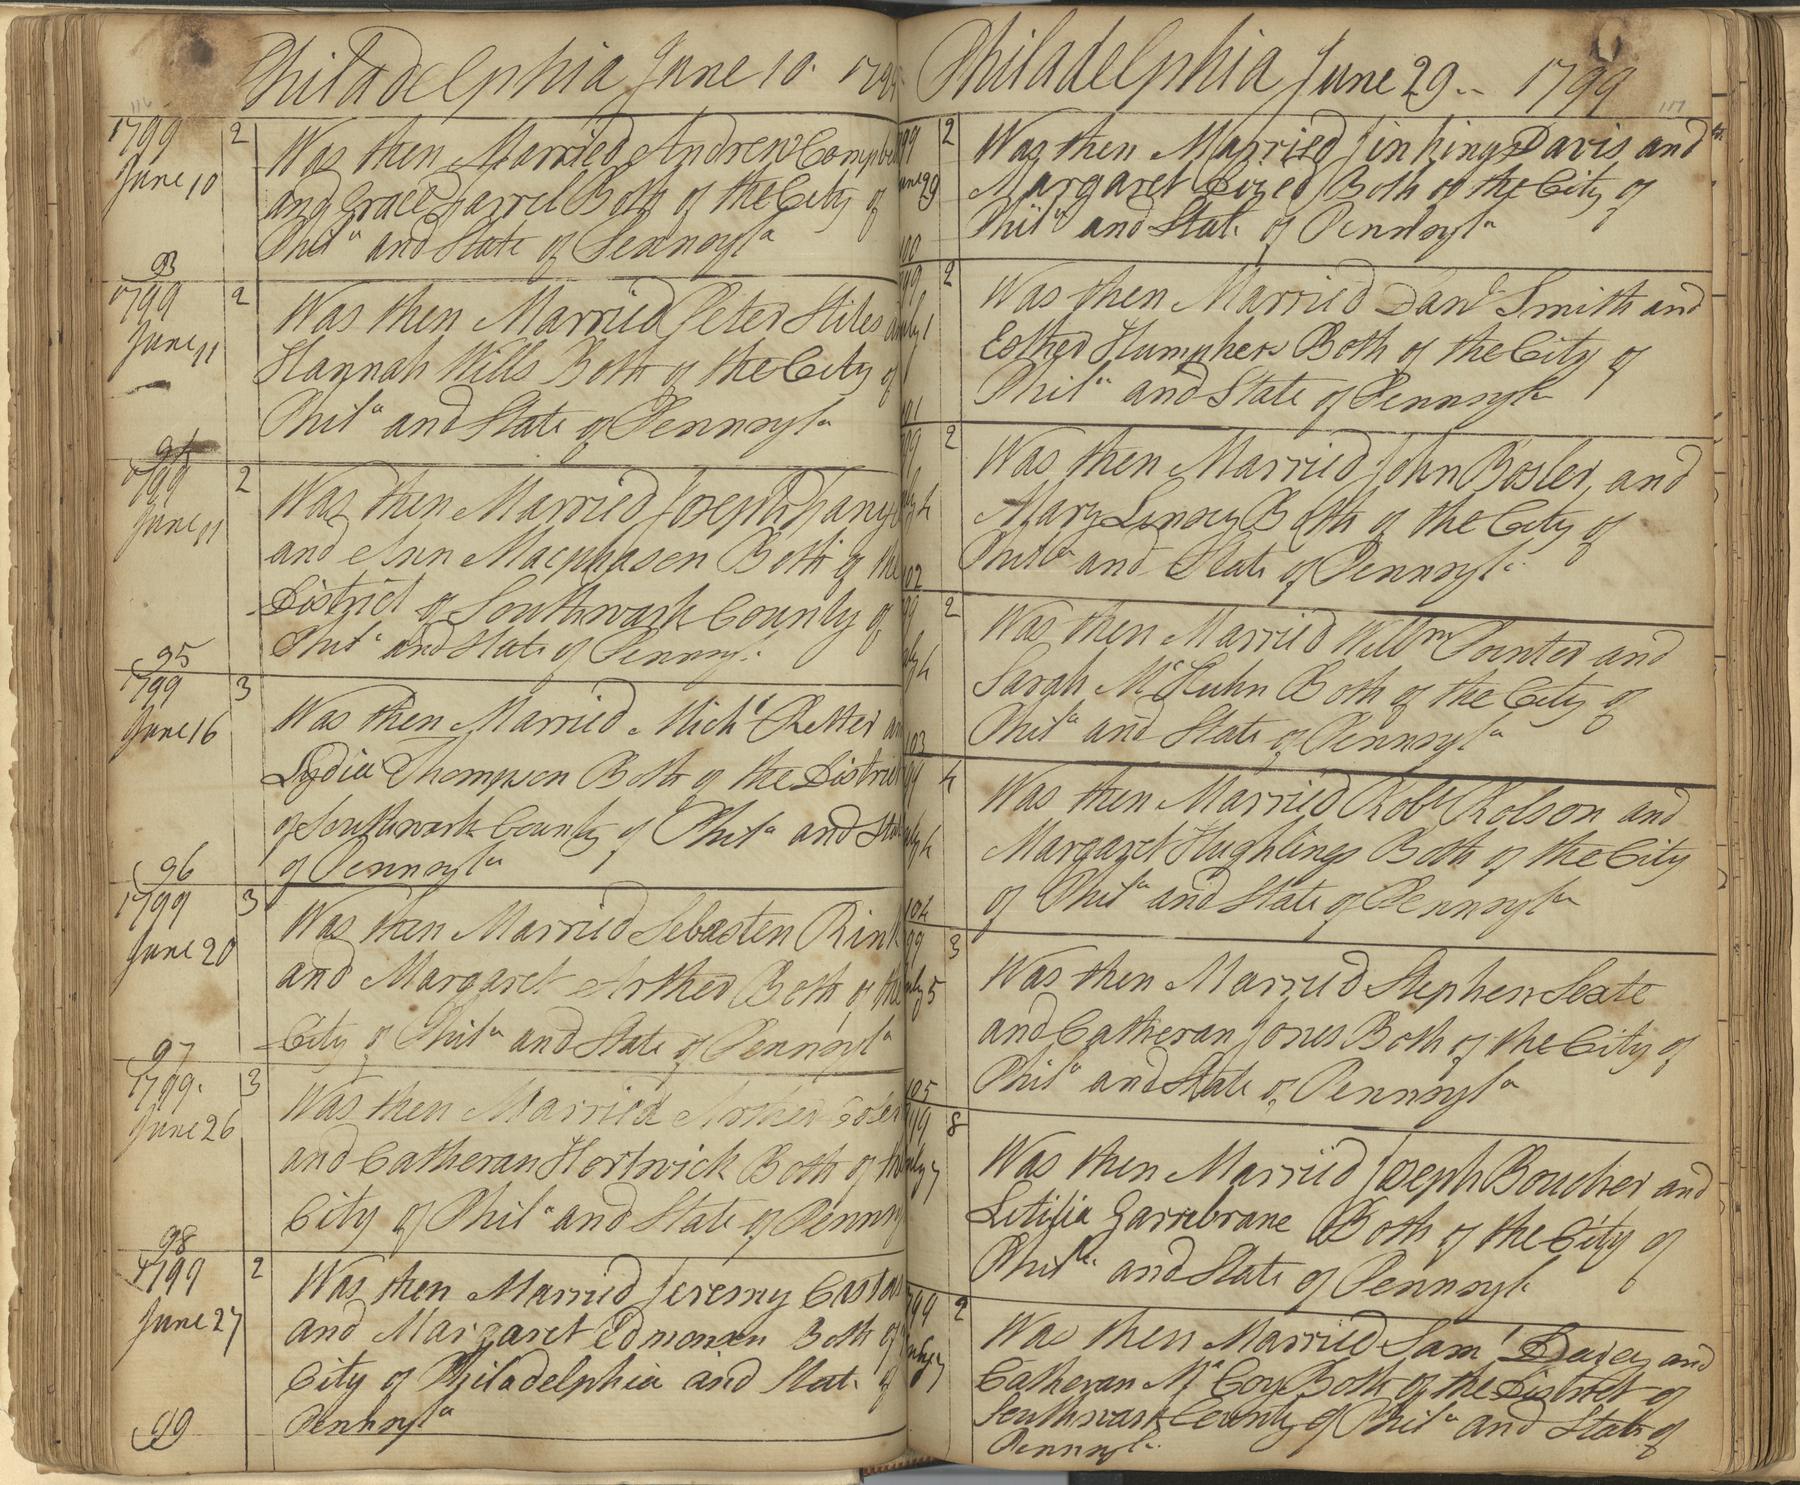 Philadelphia June 10. 179
116
1799
June 10
2
Was then Married Andrew Campbe
and Grace Farrel Both of the City of
Phila and State of Pennsyla
93
1799
June 11
2
Was then Married Peter Stiles an
Hannah Wills Both of the City of
Phila and State of Pennsyla
94
1799
June 11
2
Was then Married Joseph
and Ann Macphasen Both of the
District of Southwark County of
Phila and State of Pennsy.
95
1799
June 16
3
Was then Married Michl Retter an
Lydia Thompson Both of the District
of Southwark County of Phila and Stat
of Pennsyla
96
1799
June 20
3
Was then Married Sebasten Rink
and Margaret Arther Both of the
City of Phila and State of Pennsyla
97
1799.
June 26
3
Was then Married Arther
and Catheran Hortwick Both of the
City of Phila and State of Pennsy
98
1799
June 27
2
Was then Married Jeremy
and Margaret Edmonson Both of
City of Philadelphia and State of
Pennsyla
99
Philadelphia June 29.. 1799
117
99
une 29
2
Was then Married Jinkings Davis and
Margaret Both of the City of
Phila and State of Pennsyla
100
99
uly 1
2
Was then Married Danl Smith and
Esther Humpher Both of the City of
Phila and State of Pennsyla
101
99
uly 4
2
Was then Married John Bosler, and
Mary Linsey Both of the City of
Phila and State of Pennsyla
102
99
uly 4
2
Was then Married Willm Pointer and
Sarah McKuhn Both of the City of
Phila and State of Pennsyla
103
99
uly 4
4
Was then Married Robt Rolson and
Margaret Hughlings Both of the City
of Phila and State of Pennsyla
104
99
uly 5
3
Was then Married Stephen Seate
and Catheran Jones Both of the City of
Phila and State of Pennsyla
105
799
uly 7
8
Was then Married Joseph Boucher and
Letitia Garrebrane Both of the City of
Phila. and State of Pennsyla
799
uly 7
2
Was then Married Saml and
Catheran Mc Coy Both of the District of
Southwark County of Phila and State of
Pennsyla.